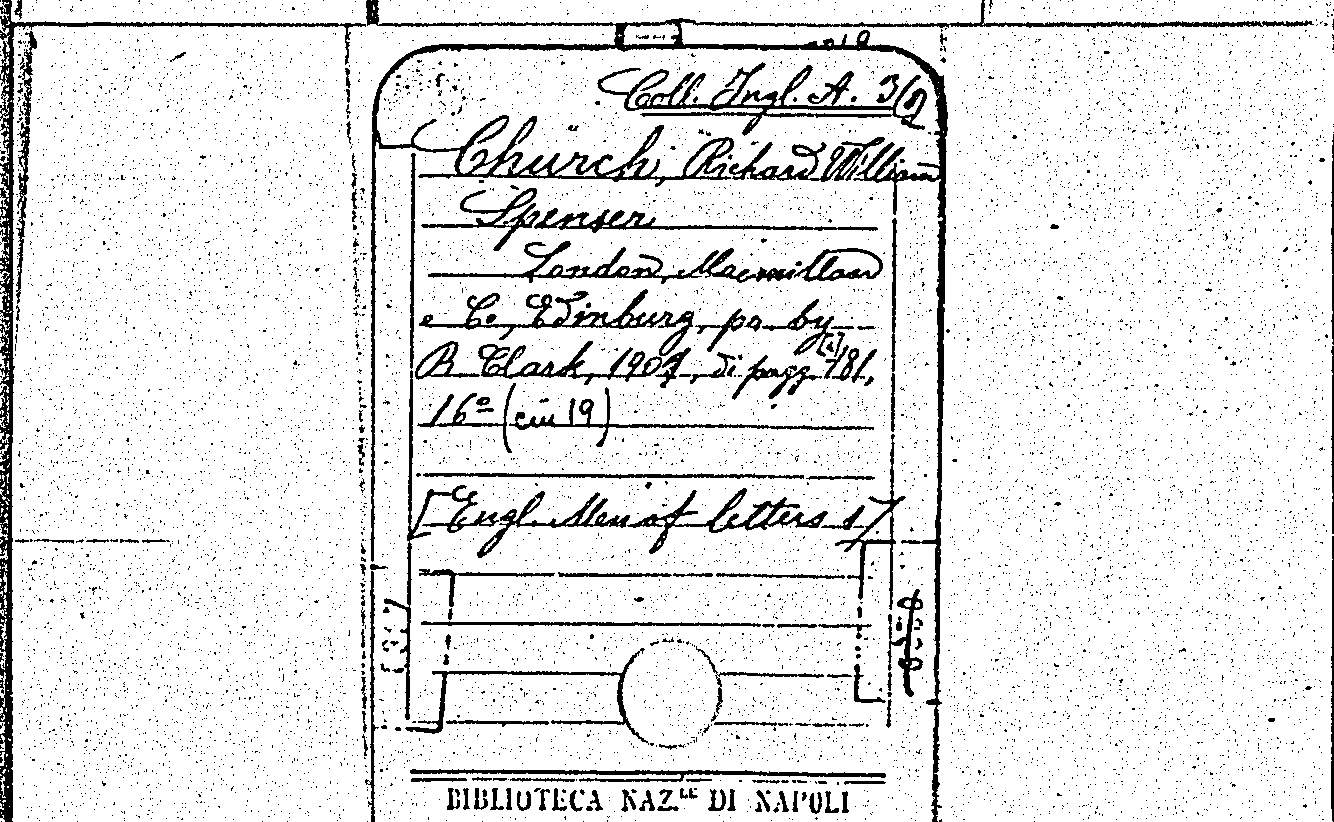 Coll. Ingl. A. 3(2)
Church, Richard William
Spenser
London, Macmillan
e C., Edinburg, po. by
R Clark, 1907, di pagg. [4], 181,
16º (cm 19)
[Engl. Men of letters 17
BIBLIOTECA NAZ.LE DI NAPOLI